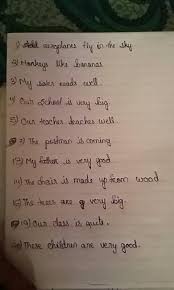 1) aeroplanes fly in the sky
2) Monkeys like bananas
3) My sister reads well.
4) Our school is very big
5) Our teacher teaches well.
7) The postman is coming
13) My father is very good
14) The chair is made up from wood
15) The trees are very big.
19) Our class is quite.
20) These children are very good.